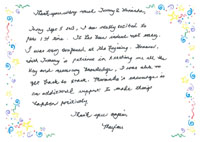 Thank you very much Tammy & Amanda,
Thirty days I said, I am really excited to
join I it time. It has been indeed not easy.
I was very confused at the beginning. However,
with Tammy's patience in teaching me all the
key and necessary knowledge, I was able to
get back to track. Amanda's encourage is
an additional support to make things
happen positively.
Thank you again